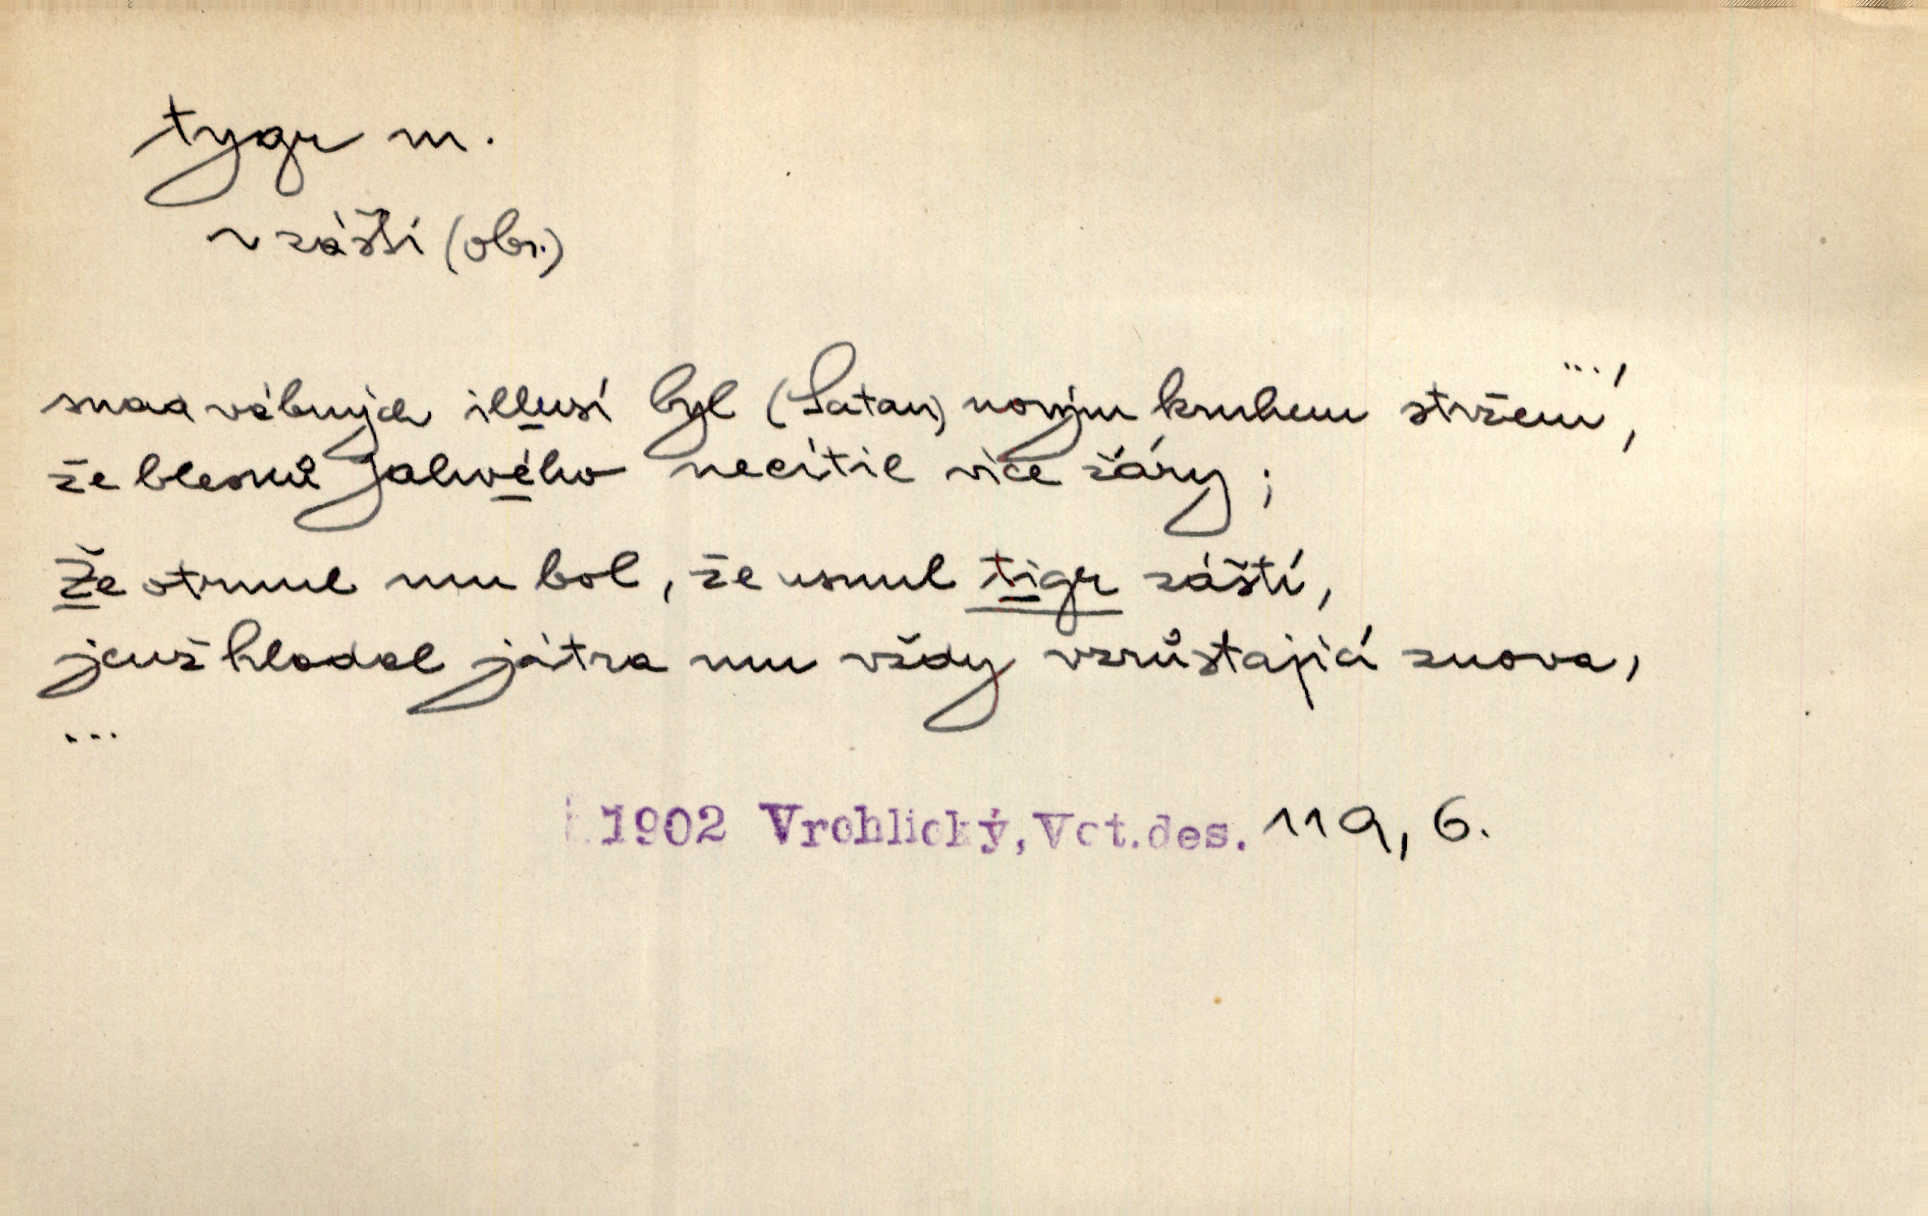 tygr m.
~ zášti (obr.)
...,
snad vábných illusí byl (Satan) novým kruhem stržen,
že blesků Jahvého necítil více žáry;
Že otrnul mu bol, že usnul tigr zášti,
jenž hlodal játra mu vždy vzrůstající znova,
...
1902 Vrchlický, Vct.des. 119, 6.